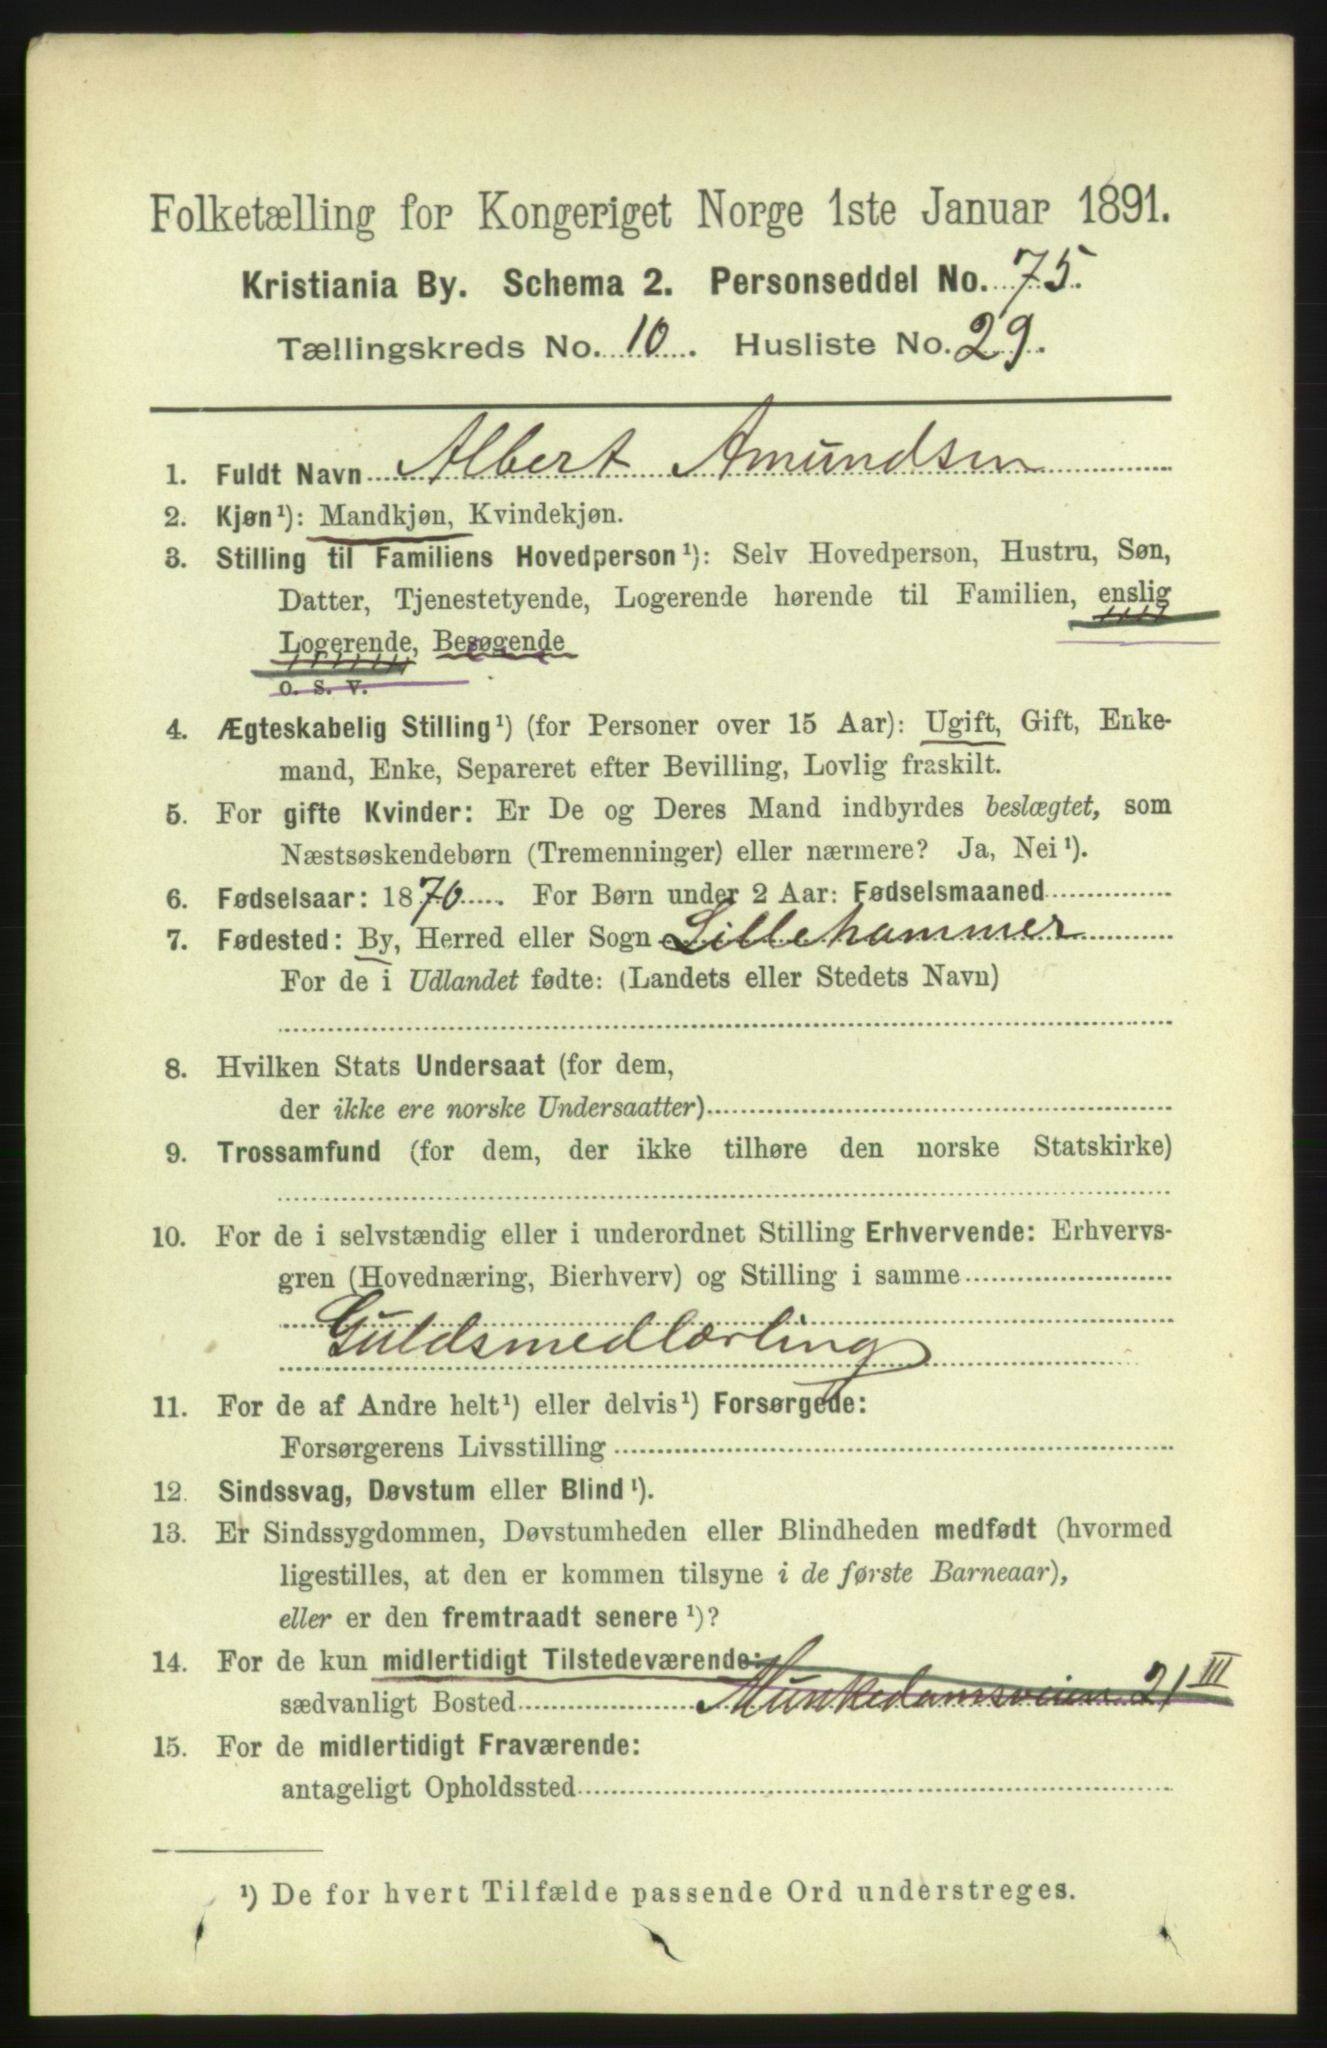 Folketælling for Kongeriget Norge 1ste Januar 1891.
Kristiania By. Schema 2. Personseddel No. 75.
Tællingskreds No. 10. Husliste No. 29.
1. Fuldt Navn Albert Amundsen
2. Kjøn¹): Mandkjøn, Kvindekjøn.
3. Stilling til Familiens Hovedperson¹): Selv Hovedperson, Hustru, Søn,
Datter, Tjenestetyende, Logerende hørende til Familien, enslig
Logerende, Besøgende
o. s. v.
4. Ægteskabelig Stilling¹) (for Personer over 15 Aar): Ugift, Gift, Enke-
mand, Enke, Separeret efter Bevilling, Lovlig fraskilt.
5. For gifte Kvinder: Er De og Deres Mand indbyrdes beslægtet, som
Næstsøskendebørn (Tremenninger) eller nærmere? Ja, Nei¹).
6. Fødselsaar: 1870. For Børn under 2 Aar: Fødselsmaaned
7. Fødested: By, Herred eller Sogn Lillehammer
For de i Udlandet fødte: (Landets eller Stedets Navn)
8. Hvilken Stats Undersaat (for dem,
der ikke ere norske Undersaatter)
9. Trossamfund (for dem, der ikke tilhøre den norske Statskirke)
10. For de i selvstændig eller i underordnet Stilling Erhvervende: Erhvervs-
gren (Hovednæring, Bierhverv) og Stilling i samme
Guldsmedlærling
11. For de af Andre helt¹) eller delvis¹) Forsørgede:
Forsørgerens Livsstilling
12. Sindssvag, Døvstum eller Blind¹).
13. Er Sindssygdommen, Døvstumheden eller Blindheden medfødt (hvormed
ligestilles, at den er kommen tilsyne i de første Barneaar),
eller er den fremtraadt senere¹)?
14. For de kun midlertidigt Tilstedeværende:
sædvanligt Bosted Munkedamsveien 21 III
15. For de midlertidigt Fraværende:
antageligt Opholdssted
¹) De for hvert Tilfælde passende Ord understreges.